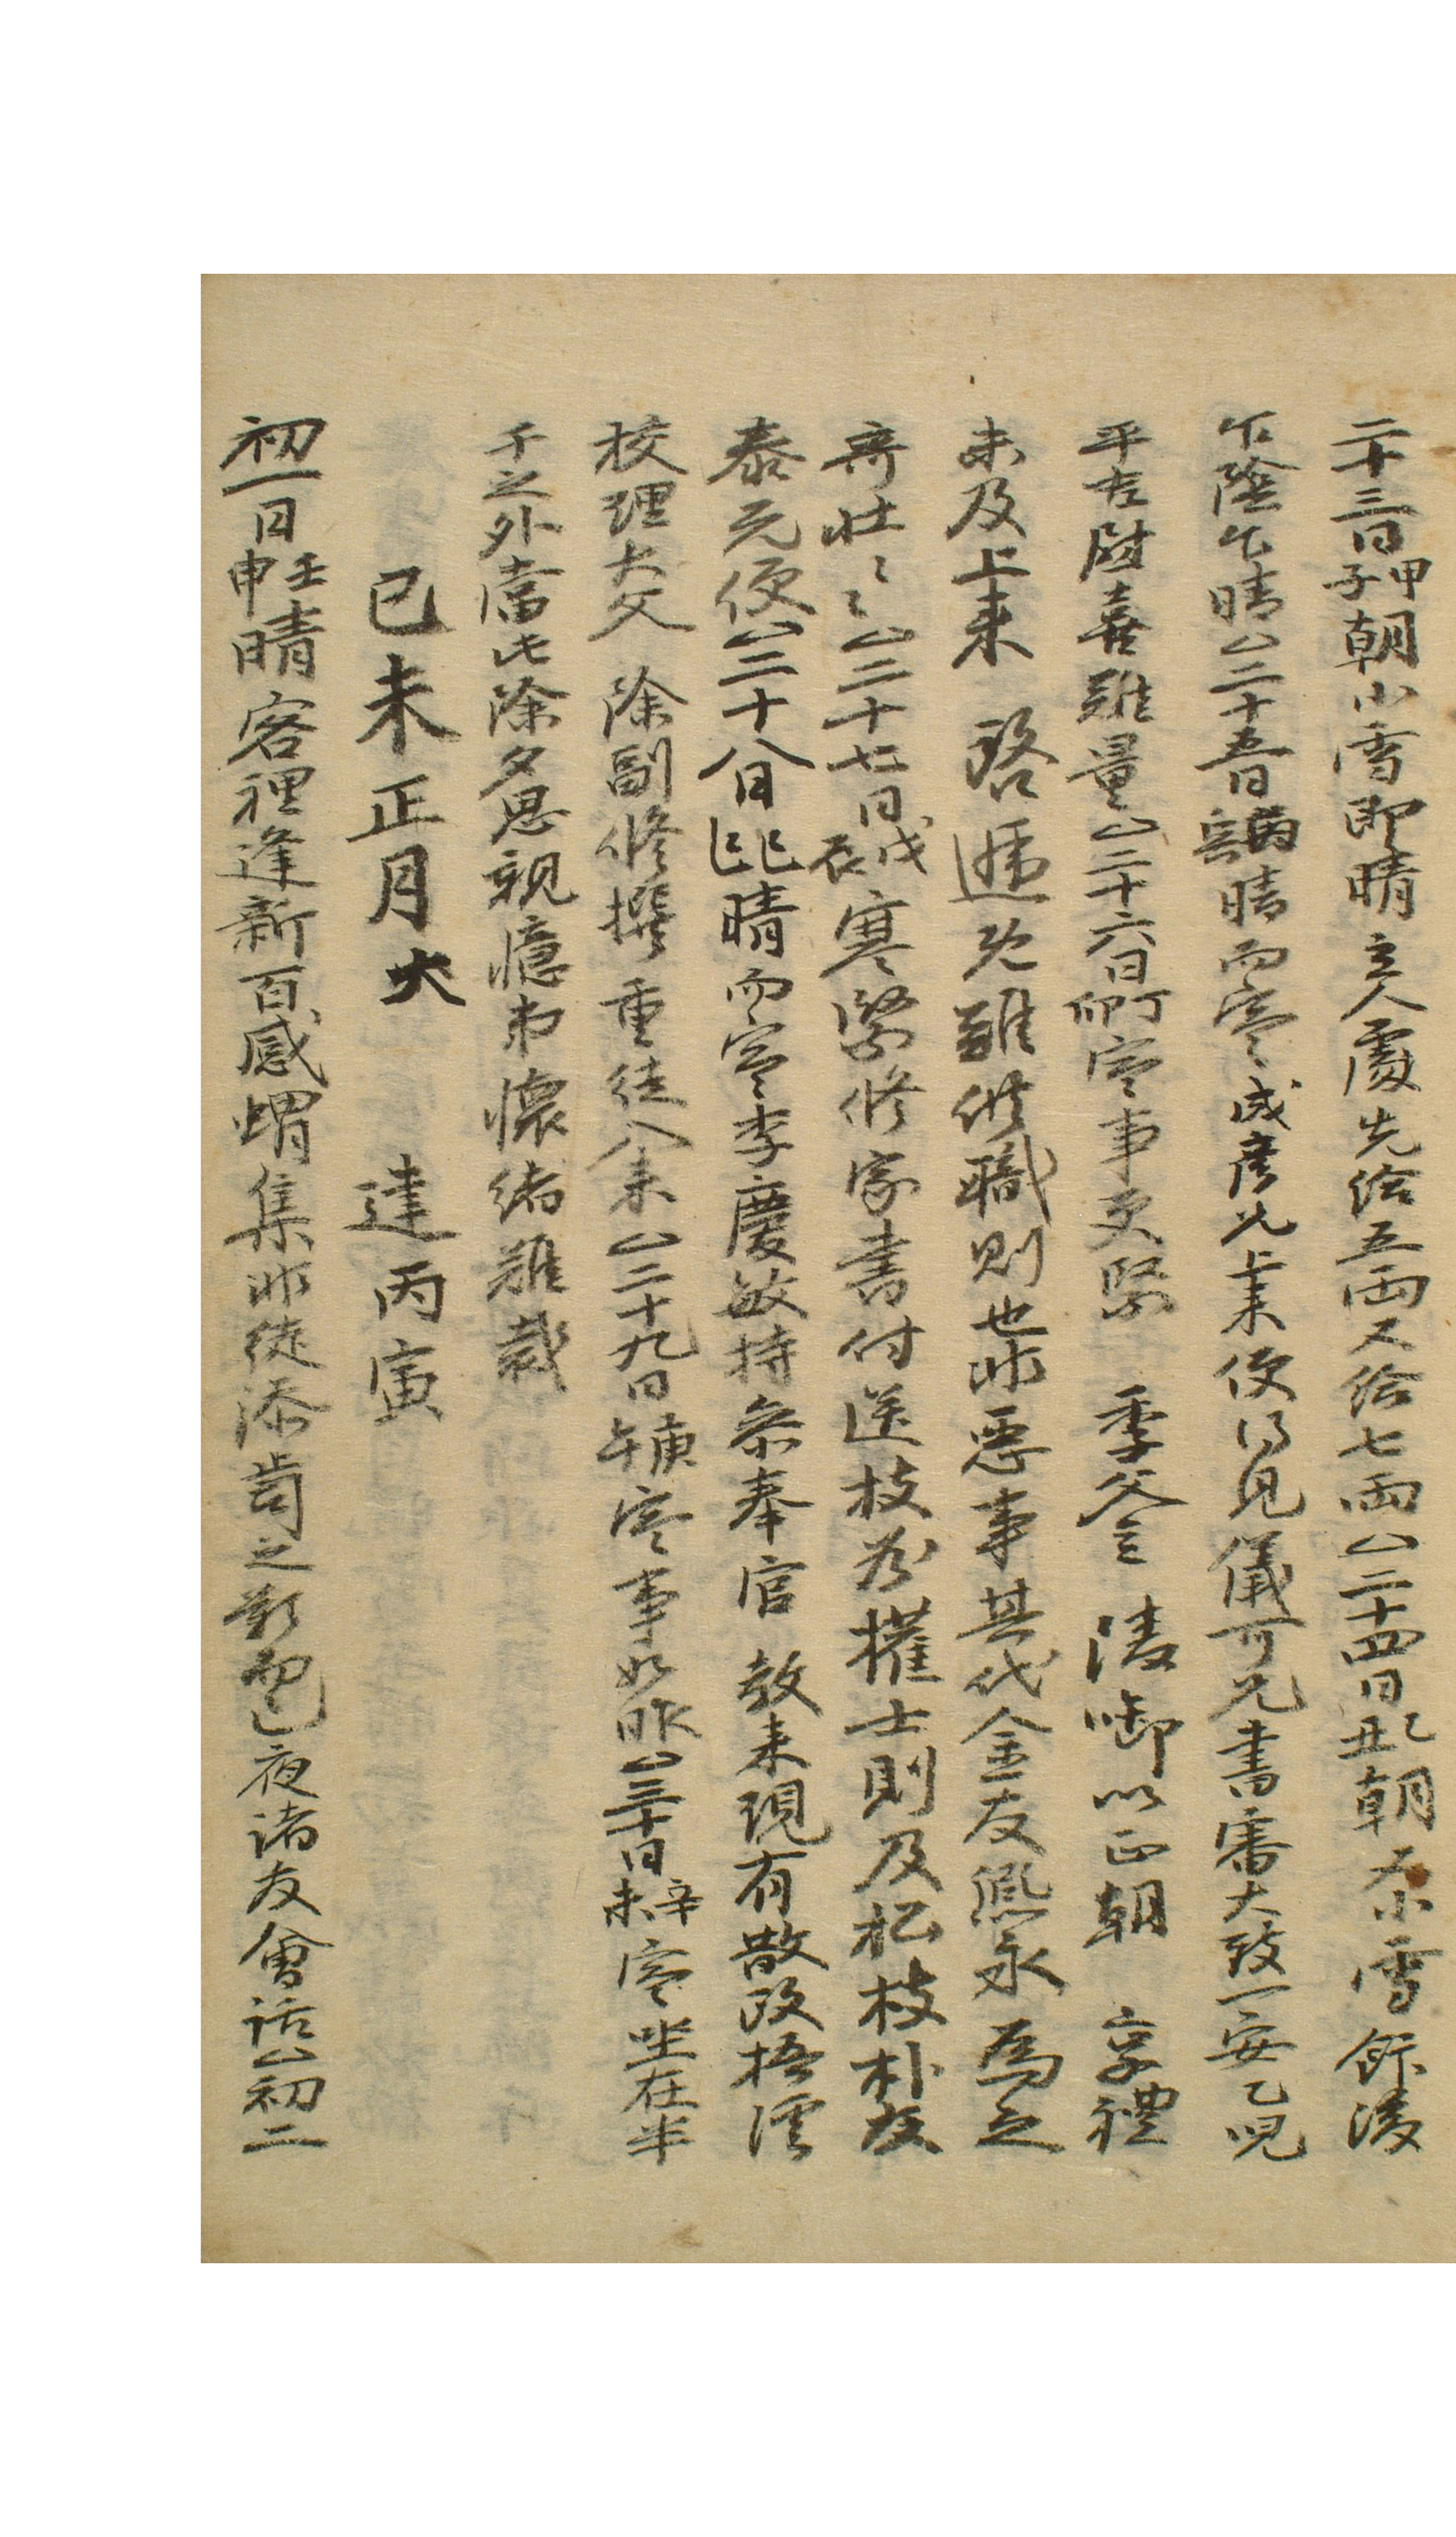 二十三日甲子朝小雪即晴主人處先給五兩又給七兩△二十四日乙丑朝下雪餘凌
乍陰乍晴△二十五日丙寅晴而寒成彦兄上來便得見儀可兄書審大致一安乙兒
平左慰喜難量△二十六日丁卯寒事更緊 季父主 陵啣以正朝 享禮
未及上來 啓遞旣難供職則也非惡事其代金友熙永爲之
奇壯〻〻△二十七日戊辰寒緊修家書付送枝谷權士則及松枝朴友
泰元便△二十八日己巳晴而寒李慶敏持參奉官 敎來現有散政梧溪
校理大父 除副修撰重徒入來△二十九日庚午寒事如昨△三十日辛未寒坐在半
千之外當此除夕思親憶弟懷緖難裁
己未正月大 建丙寅
初一日壬申晴客裡逢新百感蝟集非徒添齒之歎也夜諸友會話△初二